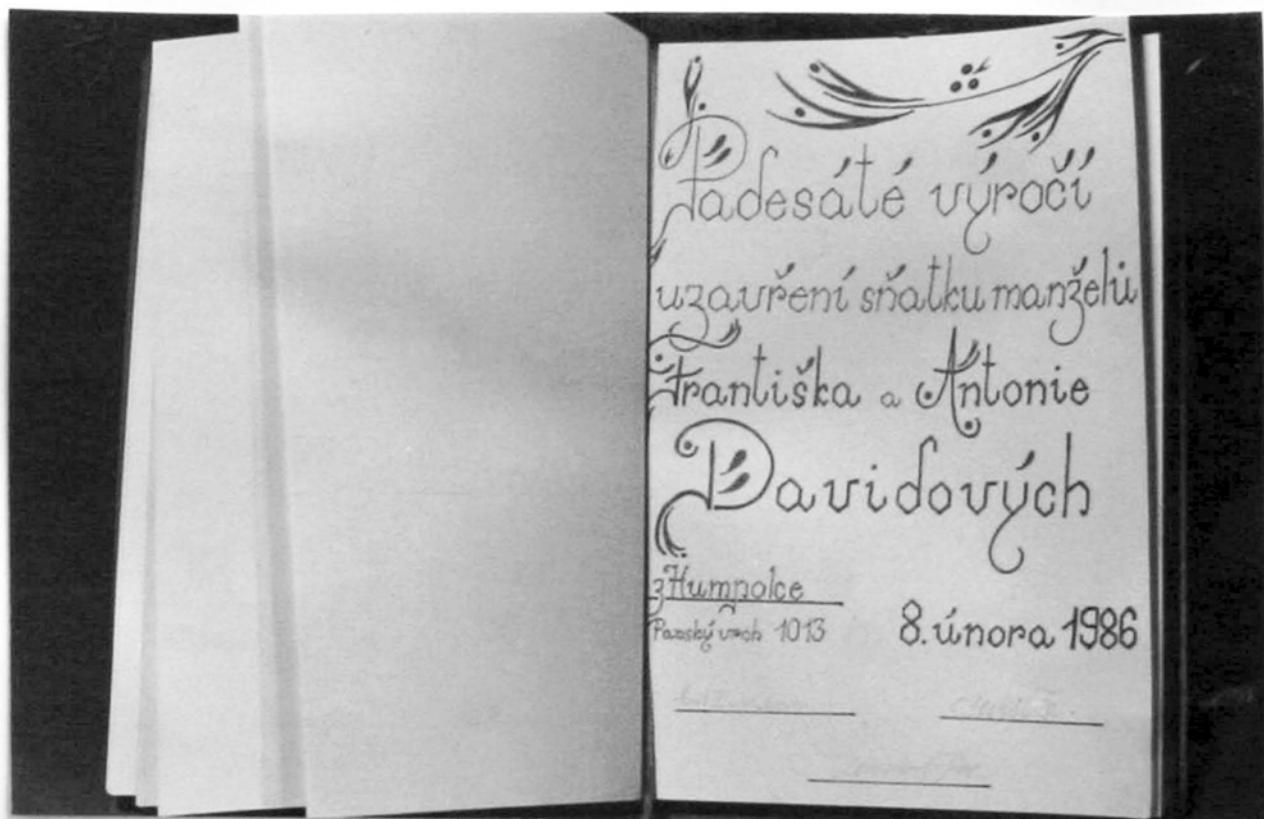 Padesáté výročí
uzavření sňatku manželů
Františka a Antonie
Davidových
z Humpolce
Panský vrch 1013
8. února 1986